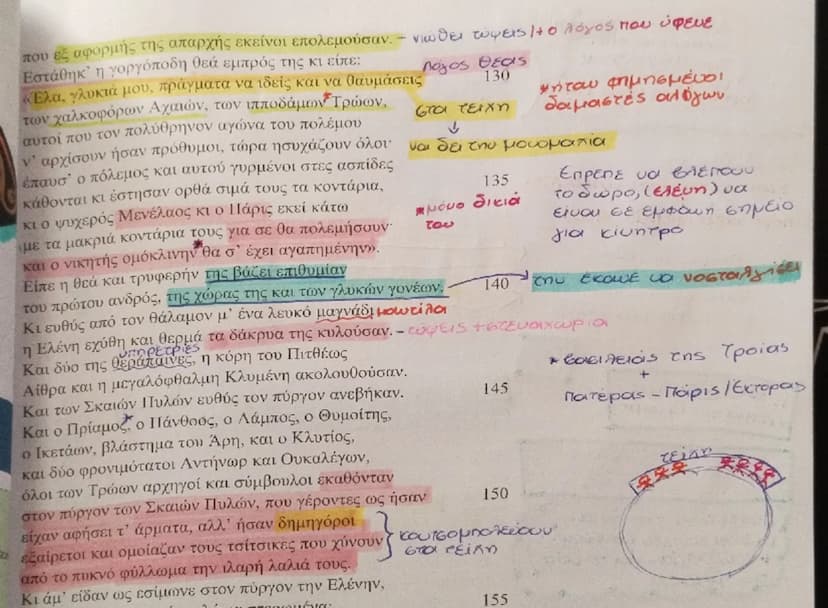 που εξ αφορμής της απαρχής εκείνοι επολεμούσαν. – νιώθει τύψεις/+ο λόγος που ύφενε
Εστάθηκ' η γοργόποδη θεά εμπρός της κι είπε: λόγος θεάς
«Έλα, γλυκιά μου, πράγματα να ιδείς και να θαυμάσεις 130
των χαλκοφόρων Αχαιών, των ιπποδάμων* Τρώων, στα τείχη
*ήταν φημησμένοι
δαμαστές αλόγων
αυτοί που τον πολύθρηνον αγώνα του πολέμου
ν' αρχίσουν ήσαν πρόθυμοι, τώρα ησυχάζουν όλοι· να δει την μονομαχία
έπαυσ' ο πόλεμος και αυτού γυρμένοι στες ασπίδες
κάθονται κι έστησαν ορθά σιμά τους τα κοντάρια, 135
κι ο ψυχερός Μενέλαος κι ο Πάρις εκεί κάτω
*μόνο δικιά
του
με τα μακριά κοντάρια τους για σε θα πολεμήσουν·
και ο νικητής ομόκλινην* θα σ' έχει αγαπημένην».
Έπρεπε να βλέπουν
το δώρο, (ελένη) να
είναι σε εμφανή σημείο
για κίνητρο
Είπε η θεά και τρυφερήν της βάζει επιθυμίαν
του πρώτου ανδρός, της χώρας της και των γλυκών γονέων. 140 την έκανε να νοσταλγήσει
Κι ευθύς από τον θάλαμον μ' ένα λευκό μαγνάδι μαντίλα
η Ελένη εχύθη και θερμά τα δάκρυα της κυλούσαν. – τύψεις + στεναχωρια
υπηρέτριες
Και δύο της θεράπαινες, η κόρη του Πιτθέως
Αίθρα και η μεγαλόφθαλμη Κλυμένη ακολουθούσαν.
Και των Σκαιών Πυλών ευθύς τον πύργον ανεβήκαν. 145
* βασιλειάς της Τροίας
+
πατέρας – Πάρις/Έκτορας
Και ο Πρίαμος*, ο Πάνθοος, ο Λάμπος, ο Θυμοίτης,
ο Ικετάων, βλάστημα του Άρη, και ο Κλυτίος,
και δύο φρονιμότατοι Αντήνωρ και Ουκαλέγων,
όλοι των Τρώων αρχηγοί και σύμβουλοι εκαθόνταν
στον πύργον των Σκαιών Πυλών, που γέροντες ως ήσαν 150
είχαν αφήσει τ' άρματα, αλλ' ήσαν δημηγόροι
εξαίρετοι και ομοίαζαν τους τσίτσικες που χύνουν
από το πυκνό φύλλωμα την ιλαρή λαλιά τους.
κουτσομπολεύουν
στα τείχη
τείχη
Κι άμ' είδαν ως εσίμωνε στον πύργον την Ελένην,
155